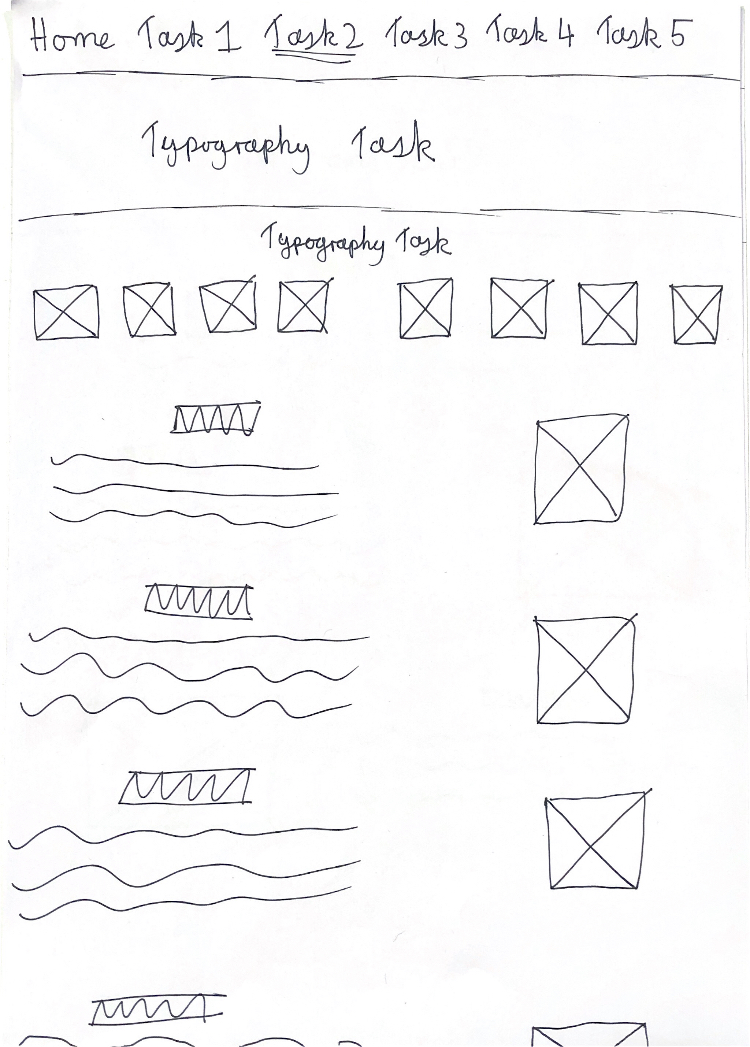 Home Task 1 Task 2 Task 3 Task 4 Task 5
Typography Task
Typography Task